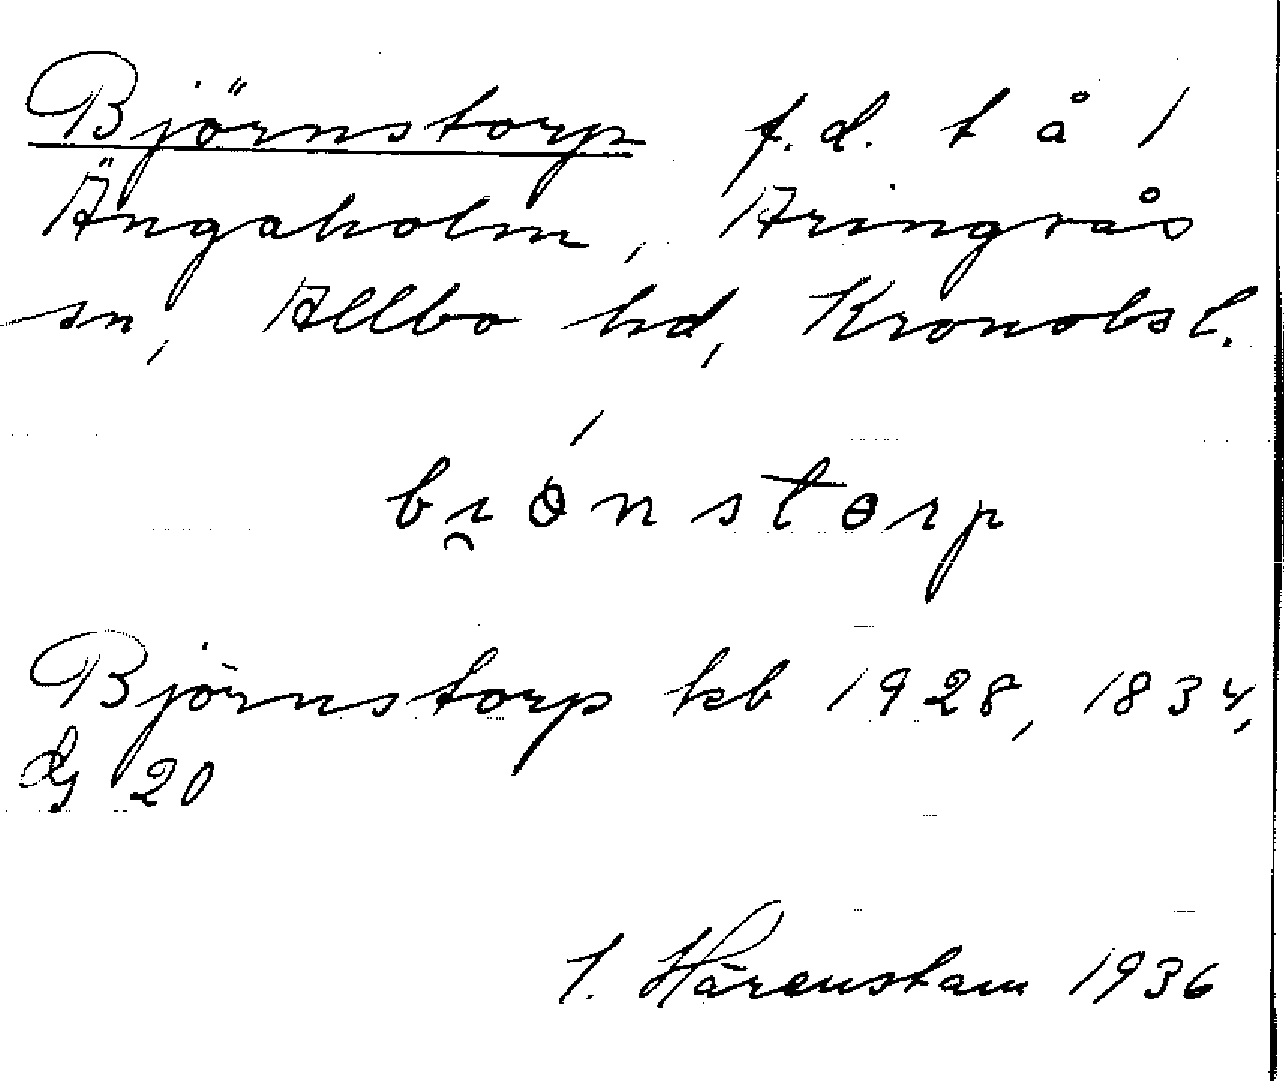 Björnstorp f.d. t å 1
Ängaholm, Aringsås
sn, Allbo hd, Kronobsl.
Björnstorp kb 1928, 1834,
dj 20
I. Härenstam 1936